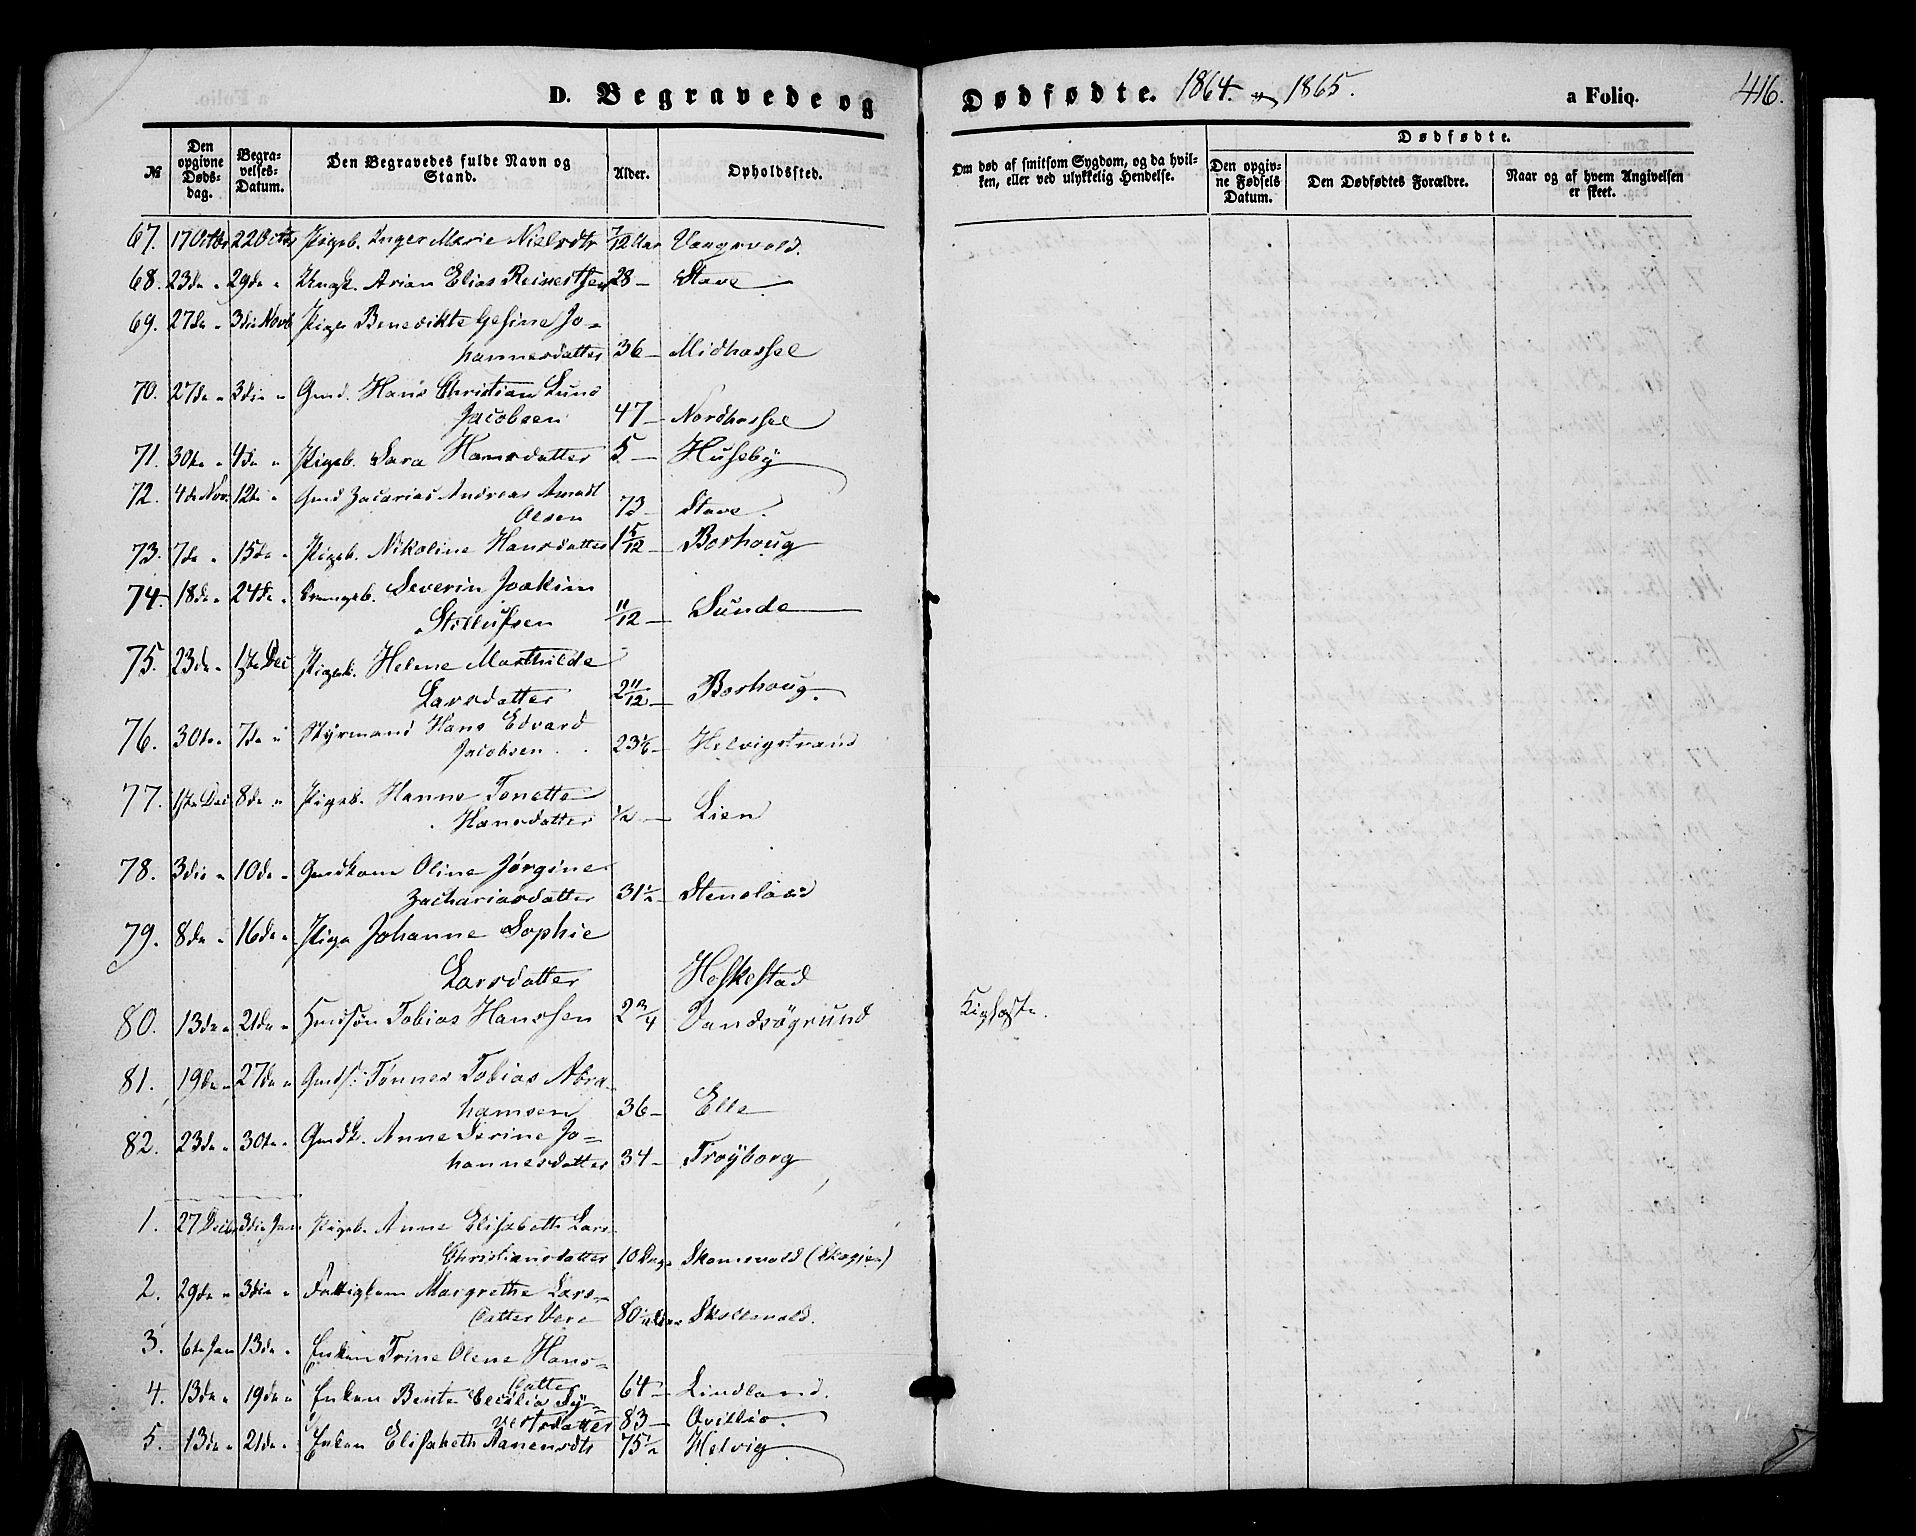 D. Begravede og Dødfødte. 1864. og 1865. a Folio. 416.
№ Den opgivne Dødsdag. Begravelses-Datum. Den Begravedes fulde Navn og Stand. Alder. Opholdssted. Om død af smitsom Sygdom, og da hvilken, eller ved ulykkelig Hendelse. Dødfødte. Den opgivne Fødsels Datum. Den Dødfødtes Forældre. Naar og af hvem Angivelsen er skeet.
67. 17 Octbr 22 Octbr Pigeb. Inger Marie Nielsdtr 7/12 Aar Vaagsvold.
68. 23de " 29de " Ungk. Arian Elias Reinertsen 28 - Stave
69. 27de " 3die Novb Pige Benedikte Gesine Jo=
hannesdatter 36 - Midhassel
70. 27de " 3die " Gmd. Hans Christian Lund
Jacobsen 47 - Nordhassel
71. 30te " 4de " Pigeb. Sara Hansdatter 5 - Huseby
72. 4de Nov. 12te " Gmd Zacarias Andreas Amadl
Olsen 73 - Stave.
73. 7de " 15de " Pigeb. Nikoline Hansdatter 1 5/12 - Borhoug
74. 18de " 24de " Drengeb. Severin Joakim
Stellufsen 11/12 - Sunde
75. 23de " 1ste Dec Pigeb. Helene Marthilde
Larsdatter 2 11/12 - Borhoug.
76. 30te " 7de " Styrmand Hans Edvard
Jacobsen 23 1/6 - Helvigstrand
77. 1ste Dec 8de " Pigeb. Hanne Tonette
Hansdatter 1/2 - Lien
78. 3die " 10de " Gmdkone Oline Jørgine
Zachariasdatter 31 1/2 - Stensland
79. 8de " 16de " Pige Johanne Sophie
Larsdatter Heskestad
80. 13de " 21de " Hmdsøn Tobias Hanssen 2 3/4 Vandsøgrund
81. 19de " 27de " Gmds: Tønnes Tobias Abra-
hamsen 36 - Elle
82. 23de " 30te " Gmdk. Anne Serine Jo=
hannesdatter 34 - Trøyborg
1. 27 Decbr 3die Jan Pigeb. Anne Elisabeth Lars
Christiansdatter 10 Dage Skomsvold (Skogien)
2. 29de " 3die " Fattiglem Margrethe Lars=
datter Vere 80 Skollevold.
3. 6te Jan 13de " Enken Trine Olene Hans=
datter 64 - Lindland.
4. 13de " 19de " Enken Bente Cecilia Sy=
vertsdatter 83 - Qvillio.
5. 13de " 21de " Enken Elisabeth Aanensdtr 75 1/2 Helvig